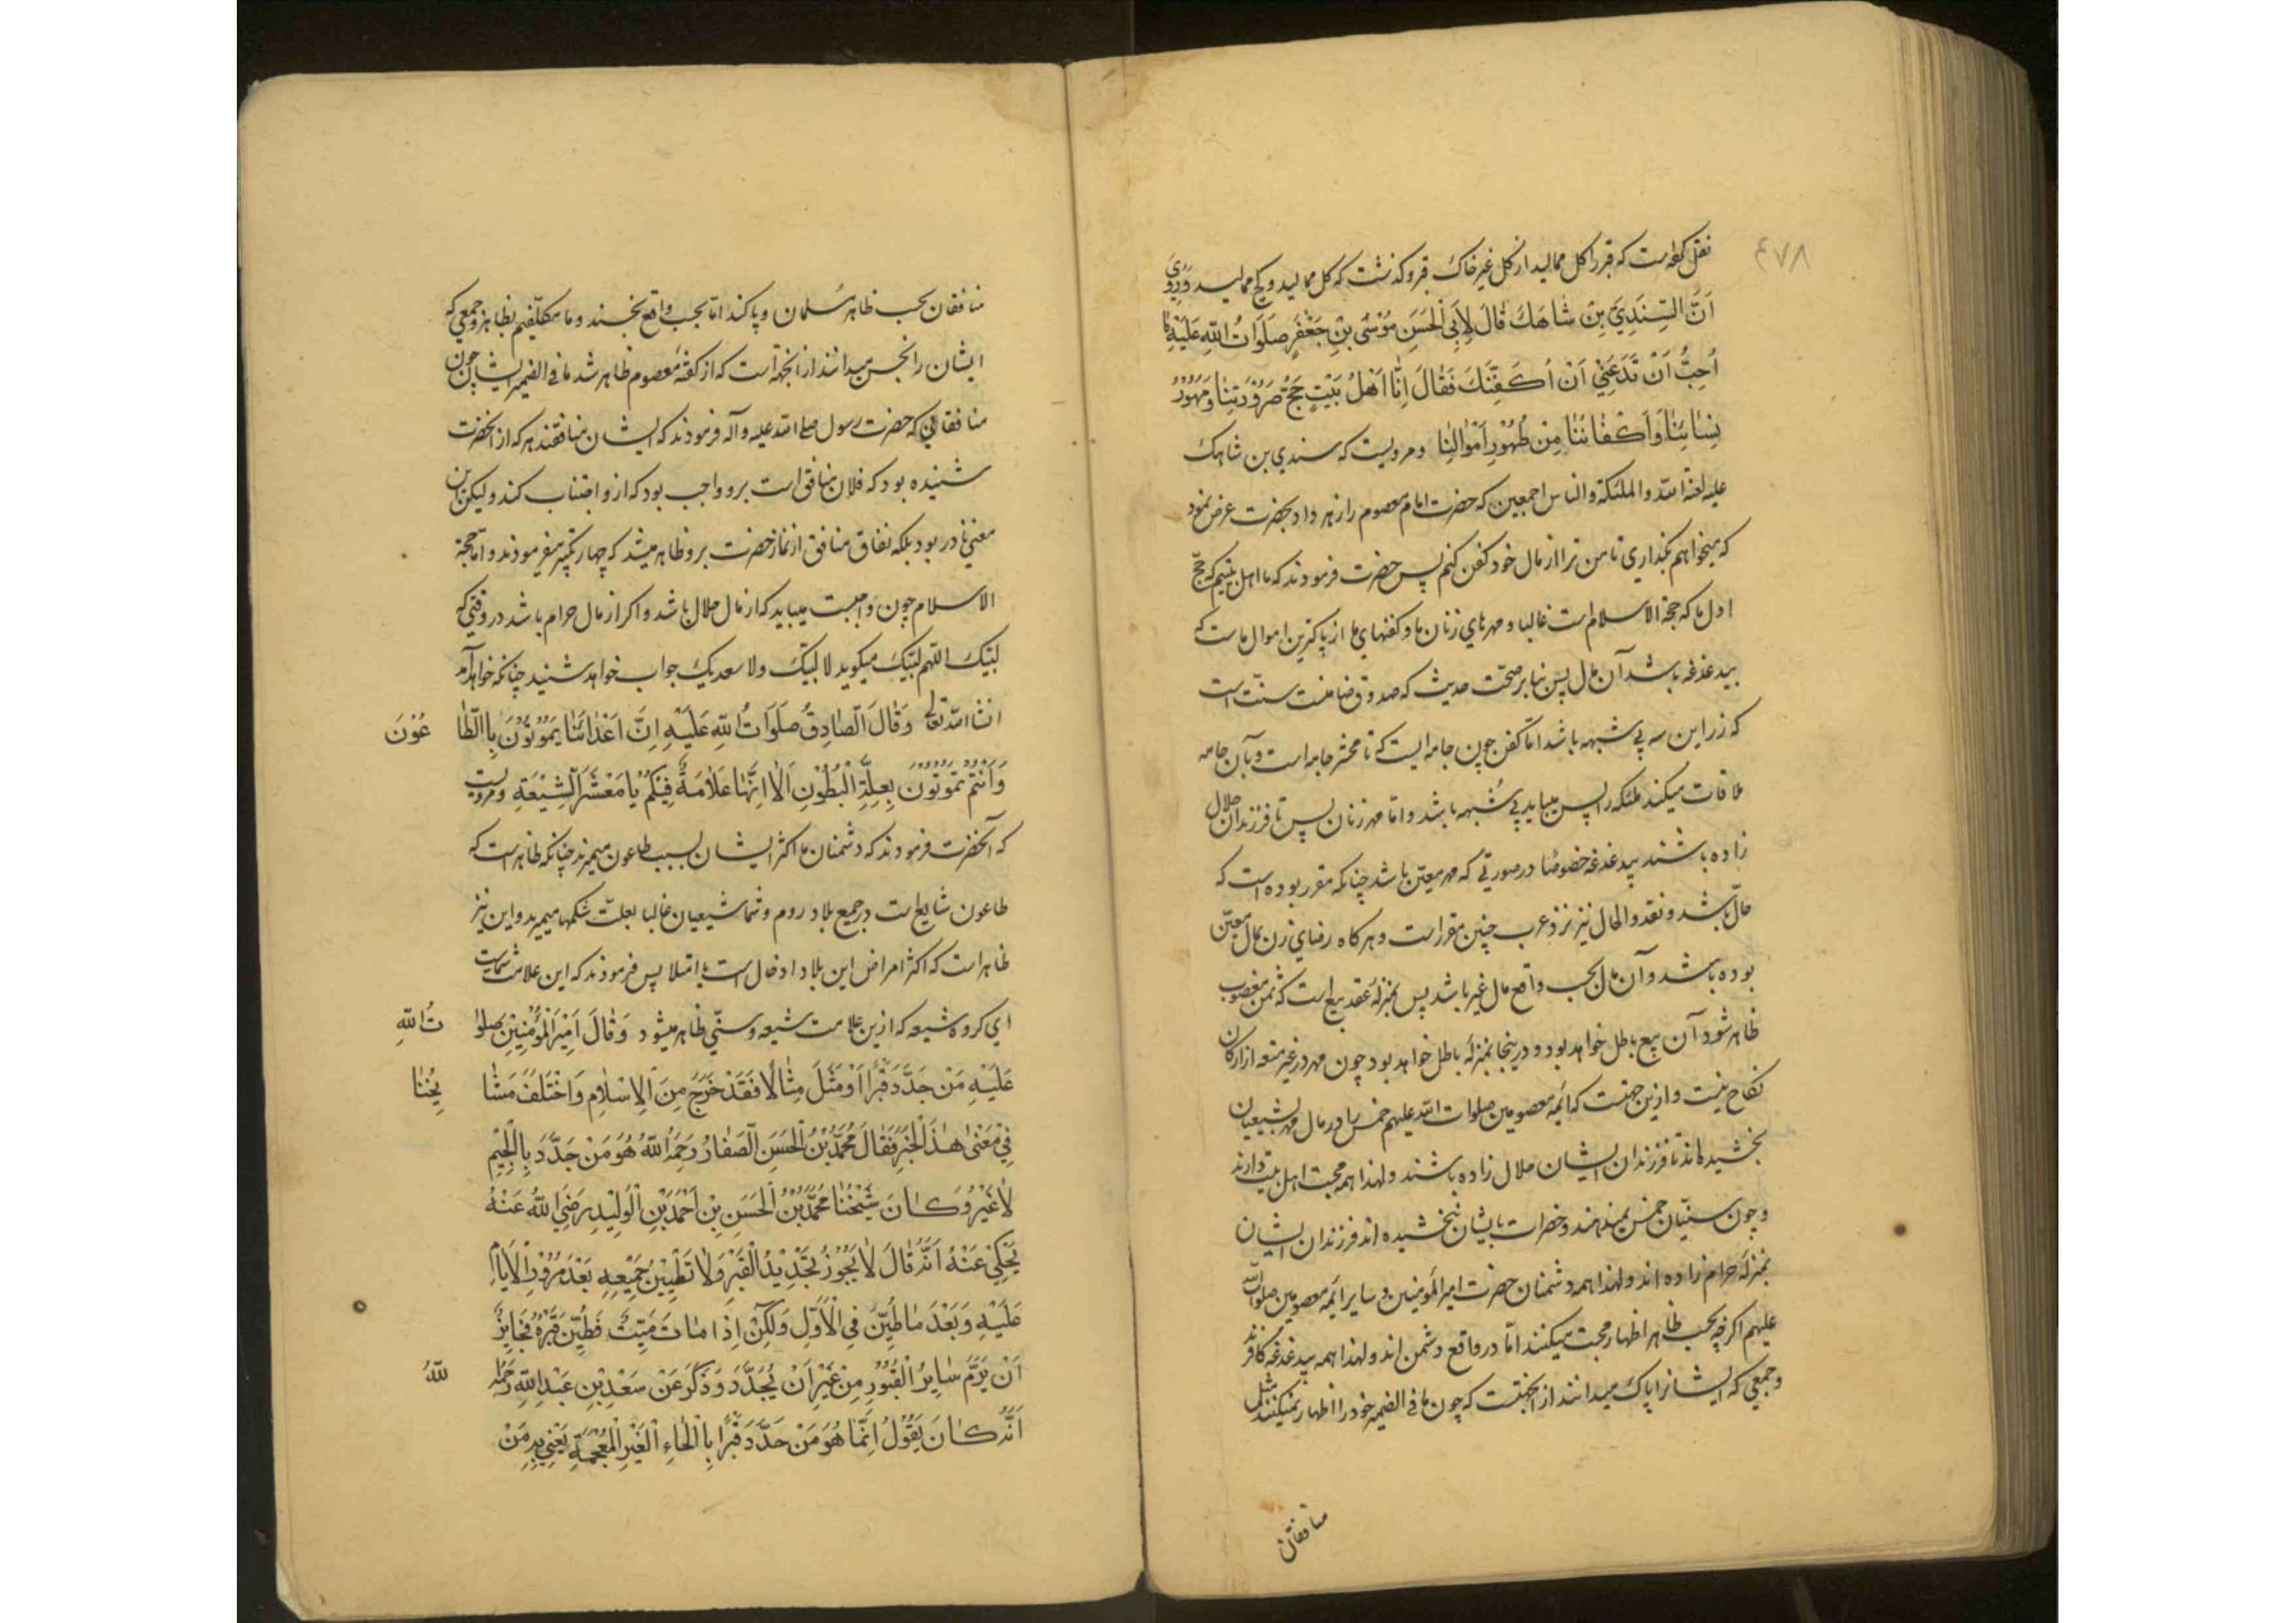 ۴۷۸
نقل کرده است که قبر را کل ممالید از کل غیر خاک قبر و کذشت که کل ممالید و کچ ممالید وَرُوِيَ
اَنَّ السِّنْدِيَّ بْنَ شَاهَكَ قَالَ لِاَبِي الْحَسَنِ مُوْسَى بْنِ جَعْفَرٍ صَلَوَاتُ اللهِ عَلَيْهِمَا
اُحِبُّ اَنْ تَدَعَنِيْ اَنْ اُكَفِّنَكَ فَقَالَ اِنَّا اَهْلُ بَيْتٍ حَجُّ صَرُوْرَتِنَا وَمُهُوْرُ
نِسَائِنَا وَاَكْفَانُنَا مِنْ طُهُوْرِ اَمْوَالِنَا ومرویست که سندي بن شاهک
علیه لعنة الله والملئکة والناس اجمعین که حضرت امام معصوم را زهر داد بحضرت عرض نمود
که میخواهم بکذاري تا من ترا از مال خود کفن کنم پس حضرت فرمودند که ما اهل بیتیم که حجّ
اول ما که حجة الاسلام است غالبا و مهرهاي زنان ما و کفنهاي ما از پاکترین اموال ماست که
بیدغدغه باشد آن مال پس بنابر صحّت حدیث که صدوق ضامنست سنّت است
که زر این سه بي شبهه باشد امّا کفن چون جامه ایست که تا محشر جامه است و بآن جامه
ملاقات میکند ملئکه را پس میباید بي شُبهه باشد و امّا مهر زنان پس تا فرزندان حلال
زاده باشند بیدغدغه خصوصًا در صورتي که مهر معیّن باشد چنانکه مقرر بوده است که
حالّ باشد و نقد و الحال نیز نزد عرب چنین مقرر است و هرکاه رضاي زن بمال معیّن
بوده باشد و آن مال بحسب واقع مال غیر باشد پس بمنزلهٔ عقد بیع است که ثمن مغصوب
ظاهر شود آن بیع باطل خواهد بود و درینجا بمنزلهٔ باطل خواهد بود چون مهر در غیر متعه از ارکان
نکاح نیست و ازین جهتست که ائمه معصومین صلوات الله علیهم خمس را در مال مهر بشیعیان
بخشیده اند تا فرزندان ایشان حلال زاده باشند ولهذا همه محبت اهل بیت دارند
و چون سنیان خمس نمیدهند و حضرات بایشان نبخشیده اند فرزندان ایشان
بمنزلهٔ حرام زاده اند ولهذا همه دشمنان حضرت امیر المؤمنین و سایر ائمه معصومین صلوات الله
علیهم اکرچه بحسب ظاهر اظهار محبت میکنند امّا در واقع دشمن اند ولهذا همه بیدغدغه کافرند
و جمعي که ایشانرا پاک میدانند از اینجهتست که چون ما في الضمیر خود را اظهار نمیکنند مثل
منافقان
منافقان بحسب ظاهر مسُلمان و پاکند امّا بحسب واقع نجسند و ما مکلّفیم بظاهر و جمعي که
ایشان را نجس میدانند از انجهة است که از کفتهٔ معصوم ظاهر شد ما في الضمیر ایشان چون
منافقاني که حضرت رسول صلى الله علیه وآله فرمودند که ایشان منافقند هرکه از انحضرت
شنیده بود که فلان منافق است برو واجب بود که ازو اجتناب کند و لیکن این
معني نادر بود بلکه نفاق منافق از نماز حضرت برو ظاهر میشد که چهار تکبیر میفرمودند و امّا حجة
الاسلام چون واجبست میباید که از مال حلال باشد و اکر از مال حرام باشد در وقتي که
لبّیک اللّهم لبّیک میکوید لا لبّیک ولا سعدیک جواب خواهد شنید چنانکه خواهد آمد
انشاءالله تعالى وَقَالَ الصَّادِقُ صَلَوَاتُ اللهِ عَلَيْهِ اِنَّ اَعْدَائَنَا يَمُوْتُوْنَ بِالطَّا عُوْنَ
وَاَنْتُمْ تَمُوْتُوْنَ بِعِلَّةِ الْبُطُوْنِ اَلَا اِنَّهَا عَلَامَةٌ فِيْكُمْ يَا مَعْشَرَ الشِّيْعَةِ ومرویست
که آنحضرت فرمودند که دشمنان ما اکثر ایشان بسبب طاعون میمیرند چنانکه ظاهر است که
طاعون شایع است در جمیع بلاد روم و شما شیعیان غالبا بعلّت شکمها میمیرید و این نیز
ظاهر است که اکثر امراض این بلاد اسهال است یا امتلا پس فرمودند که این علامت شماست
اي کروه شیعه که ازین علامت شیعه و سنّي ظاهر میشود وَقَالَ اَمِيْرُ الْمُؤْمِنِيْنَ صَلَوَا تُ اللهِ
عَلَيْهِ مَنْ جَدَّدَ قَبْرًا اَوْ مَثَّلَ مِثَالًا فَقَدْ خَرَجَ مِنَ الْاِسْلَامِ وَاخْتَلَفَ مَشَا يِخُنَا
فِيْ مَعْنٰى هٰذَا الْخَبَرِ فَقَالَ مُحَمَّدُ بْنُ الْحَسَنِ الصَّفَّارُ رَحِمَهُ اللهُ هُوَ مَنْ جَدَّدَ بِالْجِيْمِ
لَا غَيْرُ وَكَانَ شَيْخُنَا مُحَمَّدُ بْنُ الْحَسَنِ بْنِ اَحْمَدَ بْنِ الْوَلِيْدِ رَضِيَ اللهُ عَنْهُ
يَحْكِيْ عَنْهُ اَنَّهُ قَالَ لَا يَجُوْزُ تَجْدِيْدُ الْقَبْرِ وَلَا تَطْيِيْنُ جَمِيْعِهِ بَعْدَ مُرُوْرِ الْاَيَّامِ
عَلَيْهِ وَبَعْدَ مَا طُيِّنَ فِي الْاَوَّلِ وَلٰكِنْ اِذَا مَاتَ مَيِّتٌ فَطُيِّنَ قَبْرُهُ فَجَايِزٌ
اَنْ يُرَمَّ سَايِرُ الْقُبُوْرِ مِنْ غَيْرِ اَنْ يُجَدَّدَ وَذُكِرَ عَنْ سَعْدِ بْنِ عَبْدِ اللهِ رَحِمَهُ اللهُ
اَنَّهُ كَانَ يَقُوْلُ اِنَّمَا هُوَ مَنْ حَدَّدَ قَبْرًا بِالْحَاءِ الْغَيْرِ الْمُعْجَمَةِ يَعْنِيْ بِهِ مَنْ